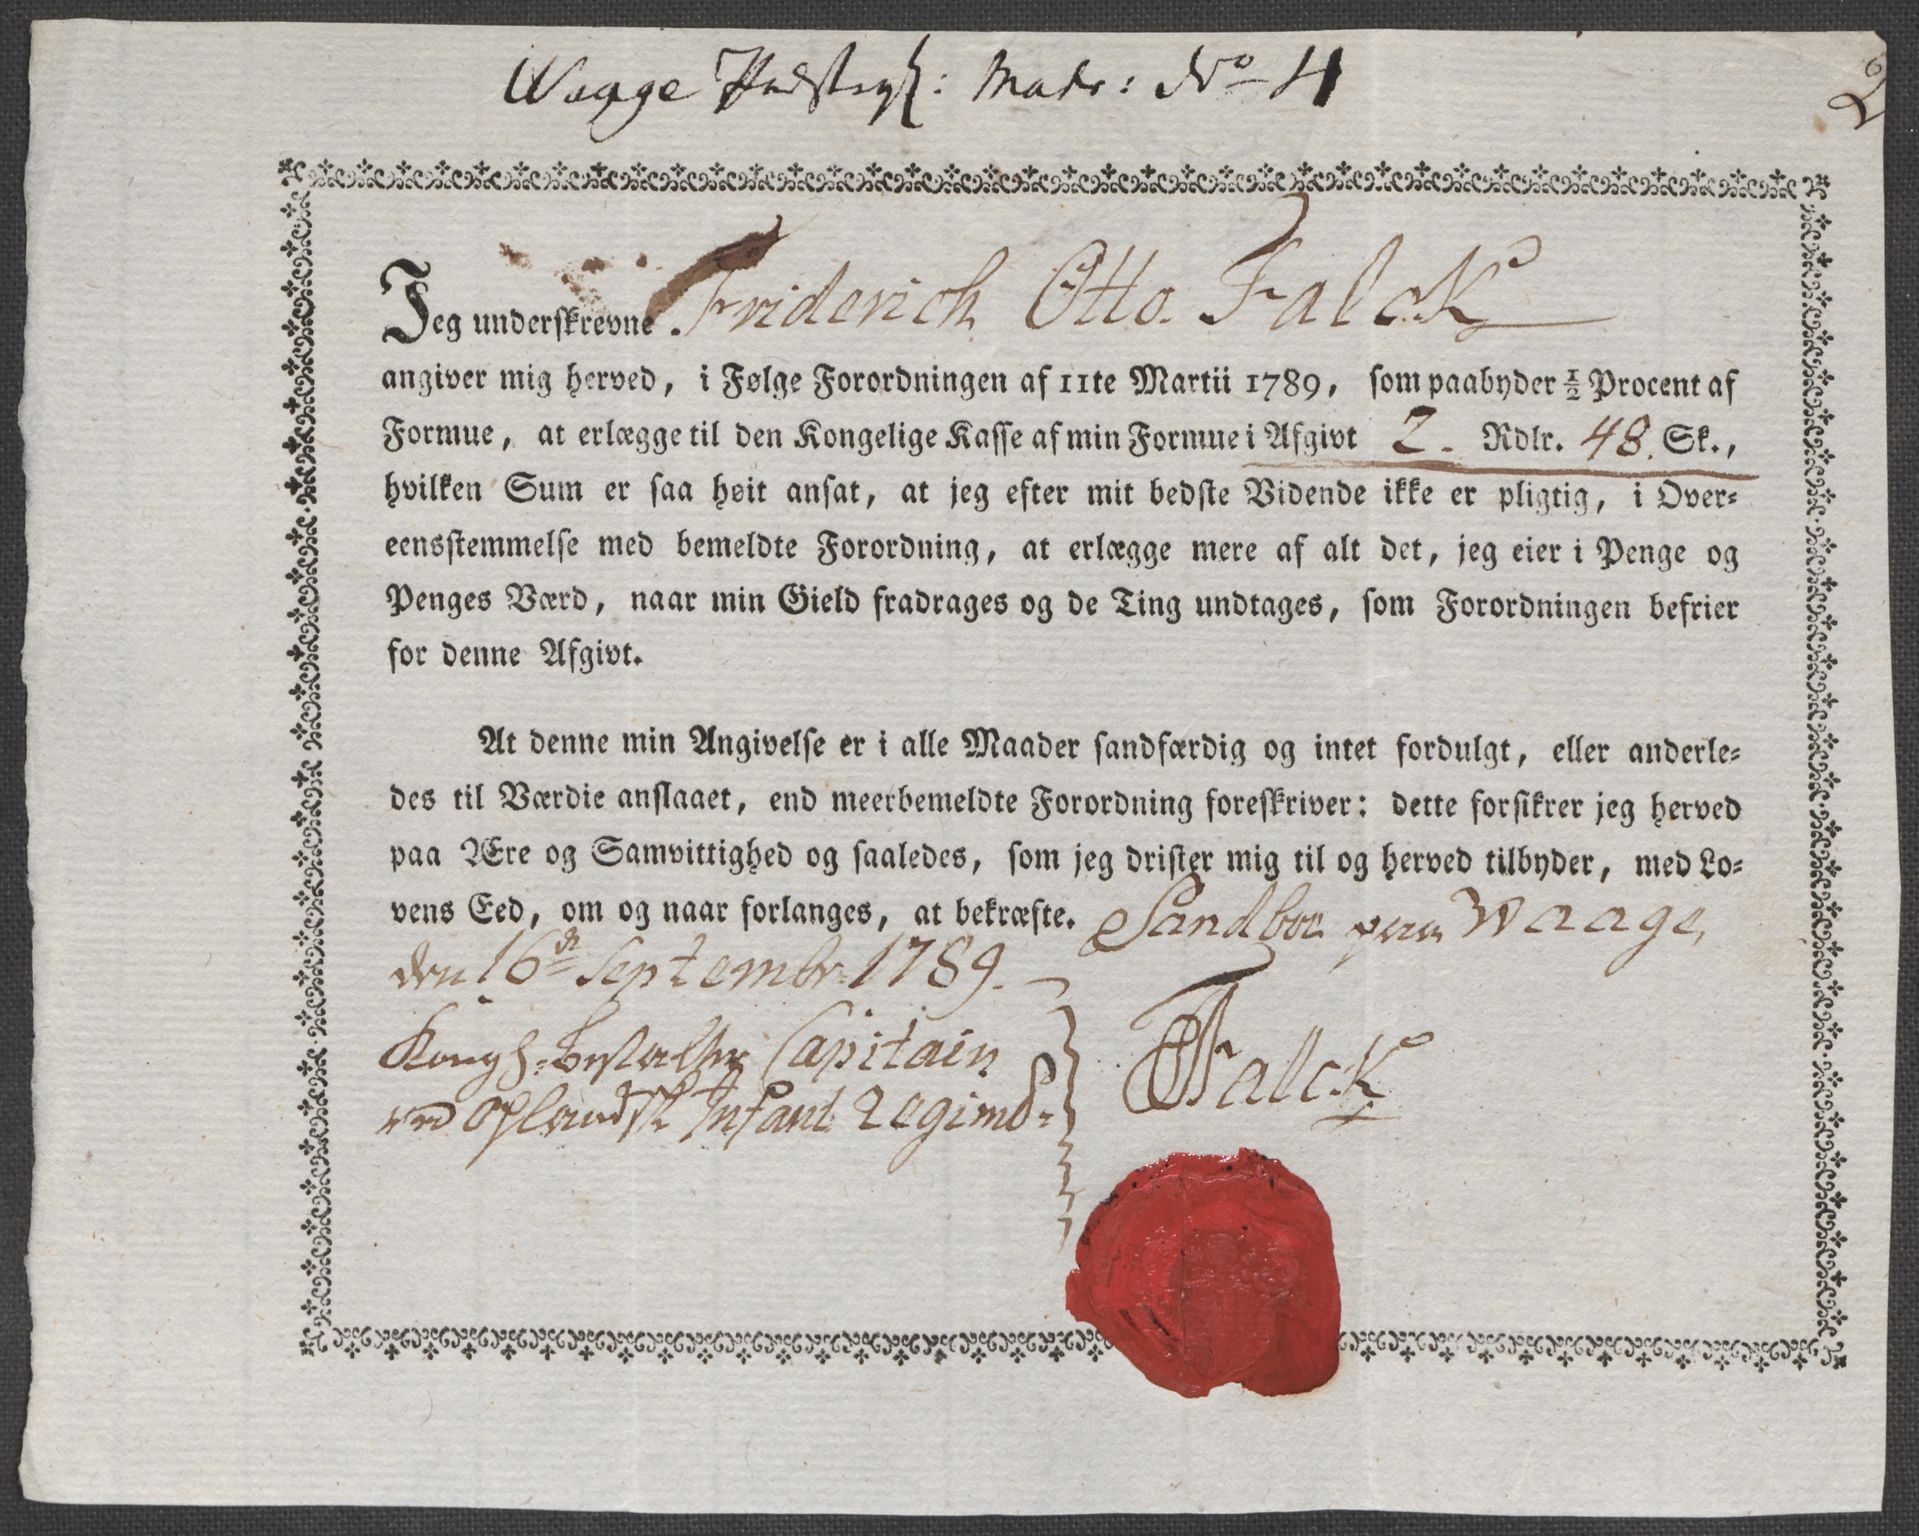 Waage Præstegl: Matr: No 4
2
Jeg underskrevne Friderich Otto Falck
angiver mig herved, i Følge Forordningen af 11te Martii 1789, som paabyder ½ Procent af
Formue, at erlægge til den Kongelige Kasse af min Formue i Afgivt 2. Rdlr. 48. Sk.,
hvilken Sum er saa høit ansat, at jeg efter mit bedste Vidende ikke er pligtig, i Over=
eensstemmelse med bemeldte Forordning, at erlægge mere af alt det, jeg eier i Penge og
Penges Værd, naar min Gield fradrages og de Ting undtages, som Forordningen befrier
for denne Afgivt.
At denne min Angivelse er i alle Maader sandfærdig og intet fordulgt, eller anderle=
des til Værdie anslaaet, end meerbemeldte Forordning foreskriver: dette forsikrer jeg herved
paa Ære og Samvittighed og saaledes, som jeg drister mig til og herved tilbyder, med Lo=
vens Eed, om og naar forlanges, at bekræfte. Sandboe paa Waage
den 16de Septembr 1789.
Kongl: bestalter Capitain
ved Oplandsk Infant Regimt:
FOFalck